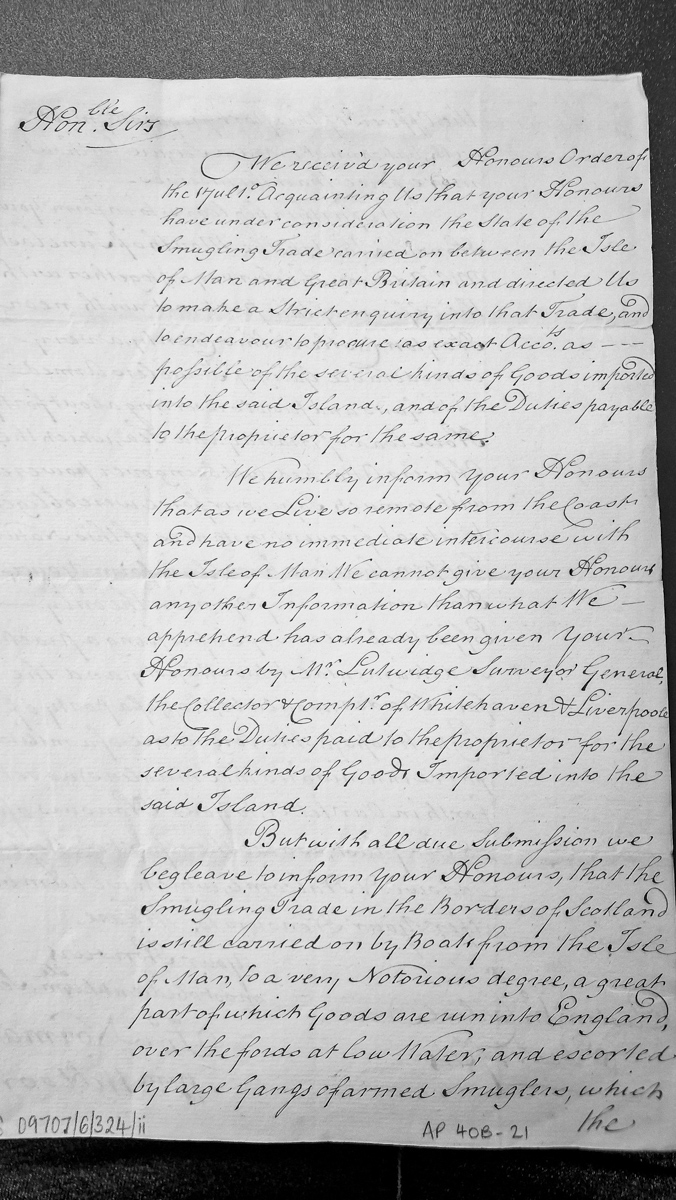 Hon.ble Sirs
We receiv'd your Honours Order of
the 17 Ult.o Acquainting Us that your Honours
have under consideration the State of the
Smugling Trade carried on between the Isle
of Man and Great Britain and directed Us
to make a Strict enquiry into that Trade, and
to endeavour to procure as exact Acco.ts as ---
possible of the several kinds of Goods imported
into the said Island, and of the Duties payable
to the proprietor for the same.
We humbly inform Your Honours
that as we Live so remote from the Coast
and have no immediate intercourse with
the Isle of Man We cannot give your Honours
any other Information than what We —
apprehend has already been given Your —
Honours by Mr. Lutwidge Surveyor General,
the Collector & Compt.r of Whitehaven & Liverpoole
as to the Duties paid to the proprietor for the
several kinds of Goods Imported into the
said Island.
But with all due Submission we
beg leave to inform your Honours, that the
Smugling Trade in the Borders of Scotland
is still carried on by Boats from the Isle
of Man, to a very Notorious degree, a great
part of which Goods are run into England,
over the fords at low Water; and escorted
by large Gangs of armed Smuglers, which
the
09707/6/324/ii
AP 40B-21